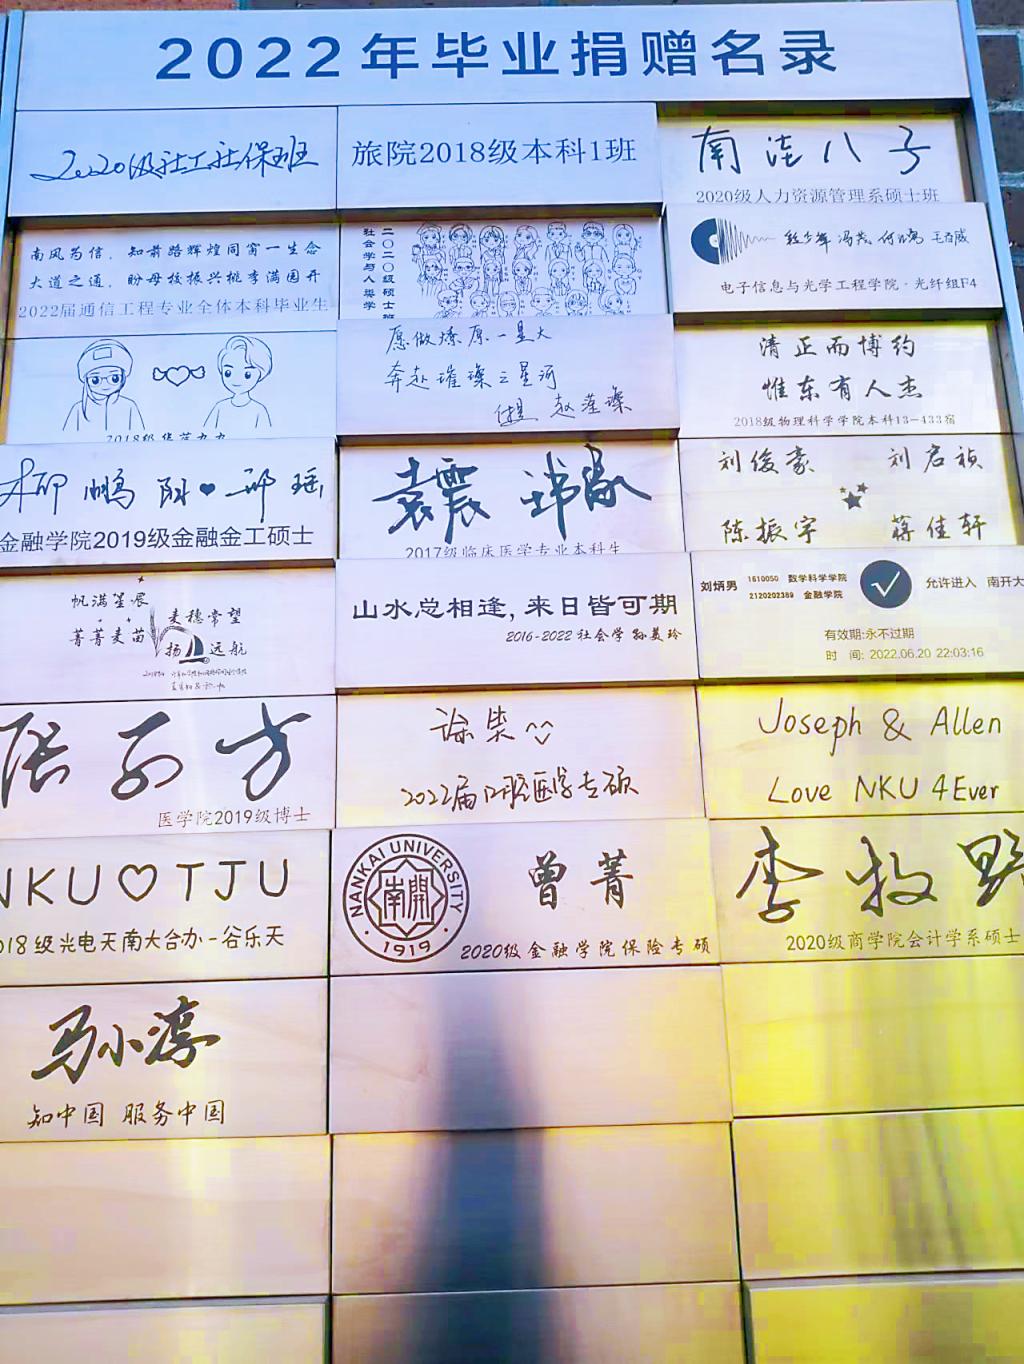 2022年毕业捐赠名录
2020级社工社保班
旅院2018级本科1班
南洼八子
2020级人力资源管理系硕士班
南风为信，知前路辉煌同窗一生念
大道之通，盼母校振兴桃李满园开
2022届通信工程专业全体本科毕业生
二〇二〇级硕士班
社会学与人类学
冯茂
电子信息与光学工程学院·光纤组F4
2018级
愿做燎原一星火
奔赴璀璨三星河
赵莹璨
清正而博约
惟东有人杰
2018级物理科学学院本科13-433宿
柳鹏翔♥邢瑶
金融学院2019级金融金工硕士
袁震
2017级临床医学专业本科生
刘俊豪 刘启祯
陈振宇 蒋佳轩
帆满星辰 麦穗常望
菁菁麦苗 扬 远航
山水总相逢，来日皆可期
2016-2022 社会学 孙美玲
刘炳男 1610050 数学科学学院
2120202389 金融学院
允许进入 南开大
有效期:永不过期
时 间: 2022.06.20 22:03:16
张万方
医学院2019级博士
涂柴^^
2022届口腔医学专硕
Joseph & Allen
Love NKU 4Ever
NKU♡TJU
2018级光电天南大合办-谷乐天
NANKAI UNIVERSITY
南開
1919
曾菁
2020级金融学院保险专硕
李牧野
2020级商学院会计学系硕士
马小淳
知中国 服务中国